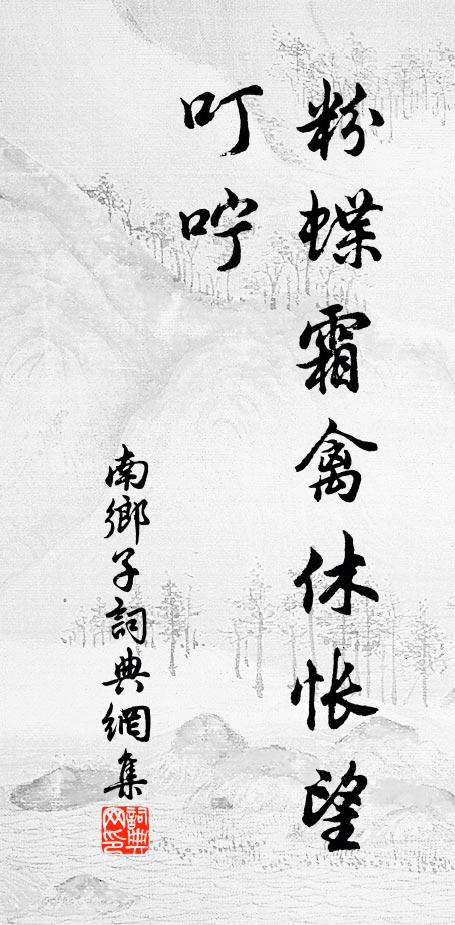 粉蝶霜禽休怅望
叮咛
南鄉子詞典網集
詞典
网印